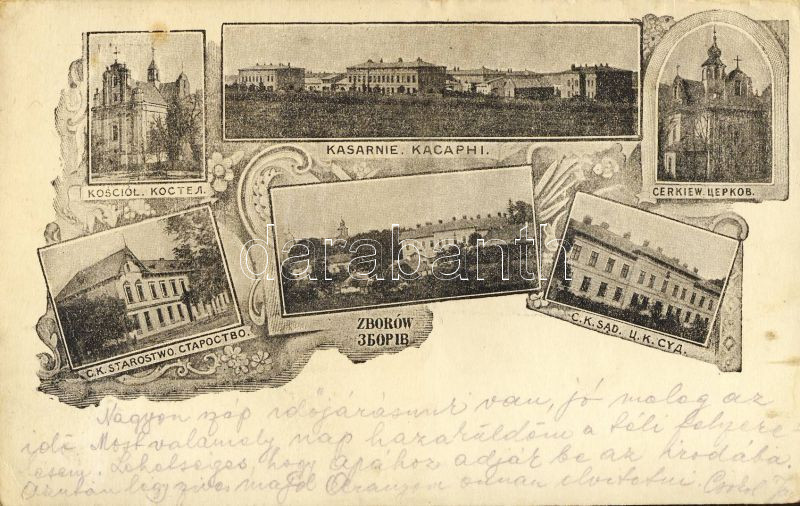 KASARNIE. КАСАРНІ.
KOŚCIÓŁ. КОСТЕЛ.
CERKIEW. ЦЕРКОВ.
darabanth
C.K. STAROSTWO. СТАРОСТВО.
C.K. SĄD. Ц. К. СУД.
ZBORÓW
ЗБОРІВ
Nagyon szép időjárásunk van, jó meleg az
idő. Most valamely nap hazaküldöm a téli
Lehetséges, hogy Apához adják be az irodába.
Azután légy szíves majd onnan elvitetni.